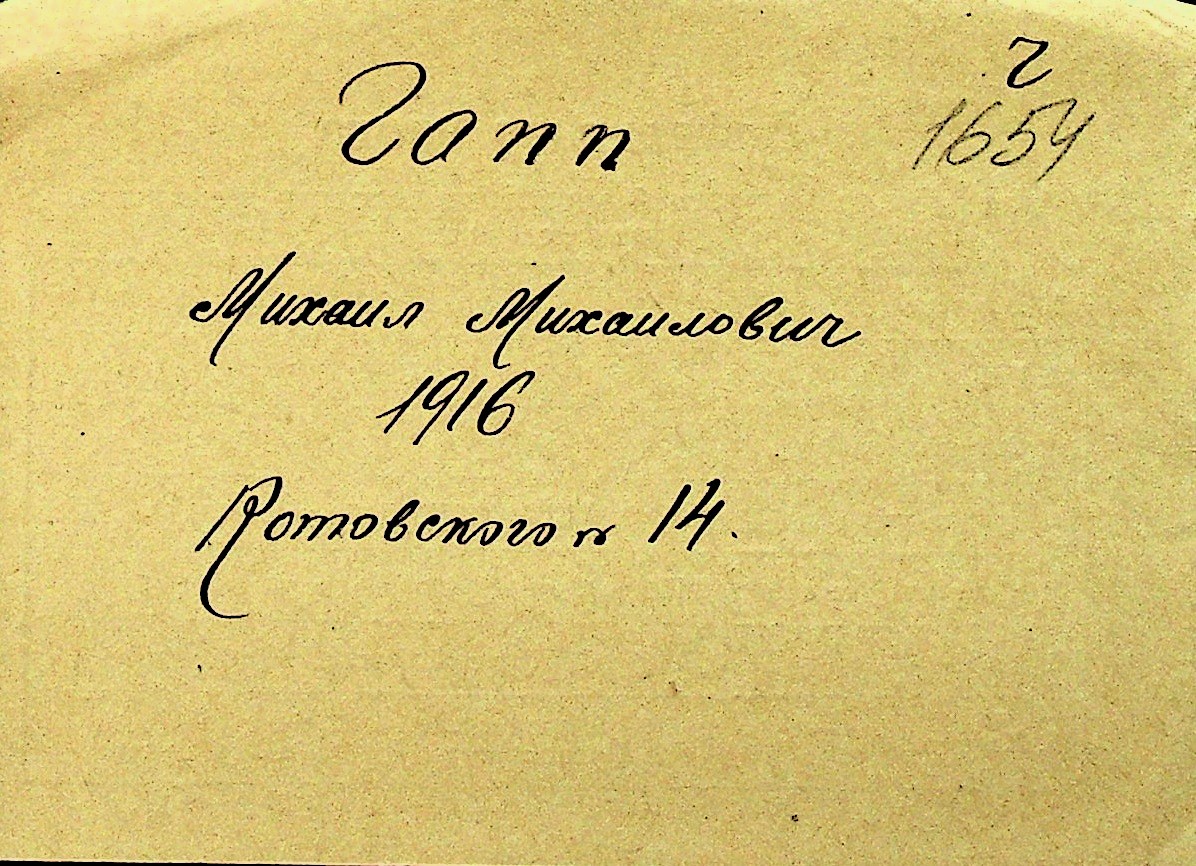 Гапп
г
1654
Михаил Михаилович
1916
Котовского № 14.